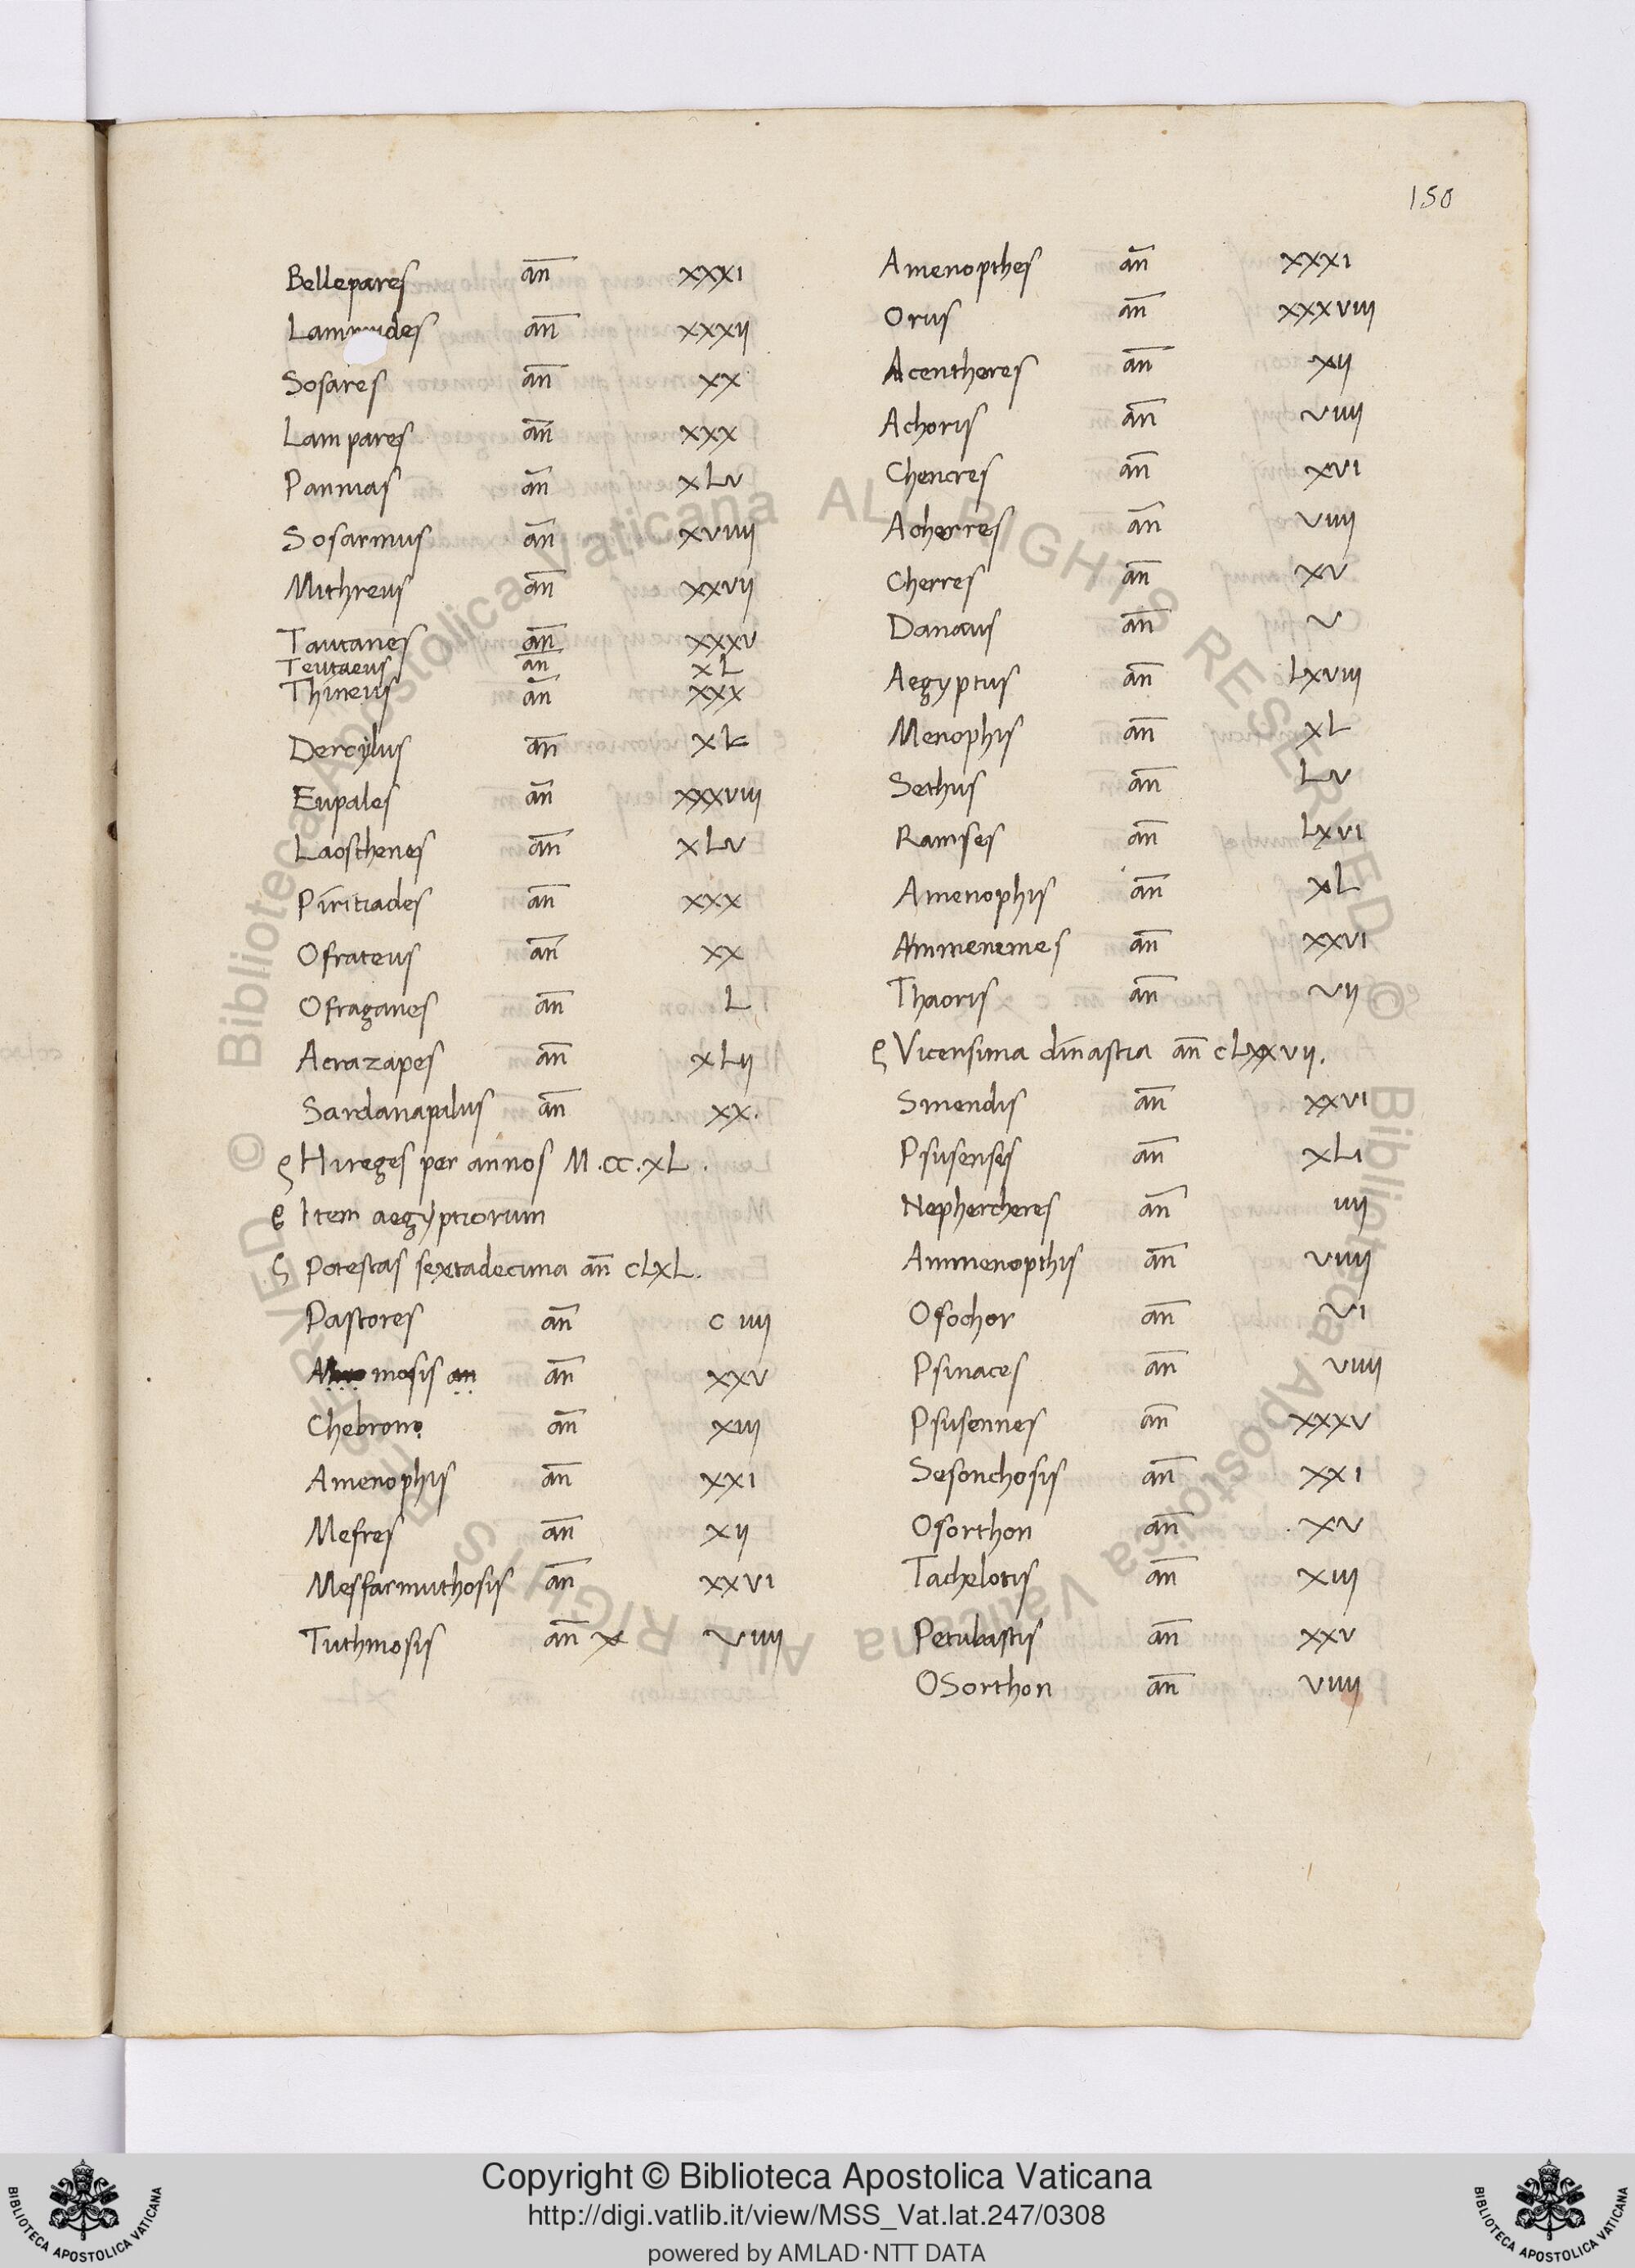 150
Bellepares an̅ xxxi
an̅ xxxii
Sosares an̅ xx
Lampares an̅ xxx
Panmas an̅ xLv
Sosarmus an̅ xviiii
Mithreus an̅ xxvii
Tautanes an̅ xxxv
Teutaeus an̅ xL
Thineus an̅ xxx
Dercylus an̅ xL
Eupales an̅ xxxviii
Laosthenes an̅ xLv
Piritiades an̅ xxx
Ofrateus an̅ xx
Ofraganes an̅ L
Acrazapes an̅ xLii
Sardanapalus an̅ xx.
Hi reges per annos M.CC.xL.
Item aegyptiorum
Potestas sextadecima an̅ cLxL.
Pastores an̅ c iiii
mosis an̅ xxv
Chebron an̅ xiii
Amenophis an̅ xxi
Mefres an̅ xii
Mesfarmuthosis an̅ xxvi
Tuthmosis an̅ viiii
Amenopthes an̅ xxxi
Orus an̅ xxxviii
Acentheres an̅ xii
Achoris an̅ viiii
Chencres an̅ xvi
Acherres an̅ viiii
Cherres an̅ xv
Danaus an̅ v
Aegyptus an̅ Lxviii
Menophis an̅ xL
Sethus an̅ Lv
Ramses an̅ Lxvi
Amenophis an̅ xL
Ammenemes an̅ xxvi
Thaoris an̅ vii
Vicensima dinastia an̅ cLxxvii.
Smendis an̅ xxvi
Psusenses an̅ xLi
Nephercheres an̅ iiii
Ammenopthis an̅ viiii
Osochor an̅ vi
Psinaces an̅ viiii
Psusennes an̅ xxxv
Sesonchosis an̅ xxi
Osorthon an̅ xv
Tachelotis an̅ xiii
Petubastis an̅ xxv
OSorthon an̅ viiii
© Biblioteca Apostolica Vaticana ALL RIGHTS RESERVED
© Biblioteca Apostolica Vaticana ALL RIGHTS RESERVED
Copyright © Biblioteca Apostolica Vaticana
http://digi.vatlib.it/view/MSS_Vat.lat.247/0308
powered by AMLAD·NTT DATA
BIBLIOTECA APOSTOLICA VATICANA
BIBLIOTECA APOSTOLICA VATICANA